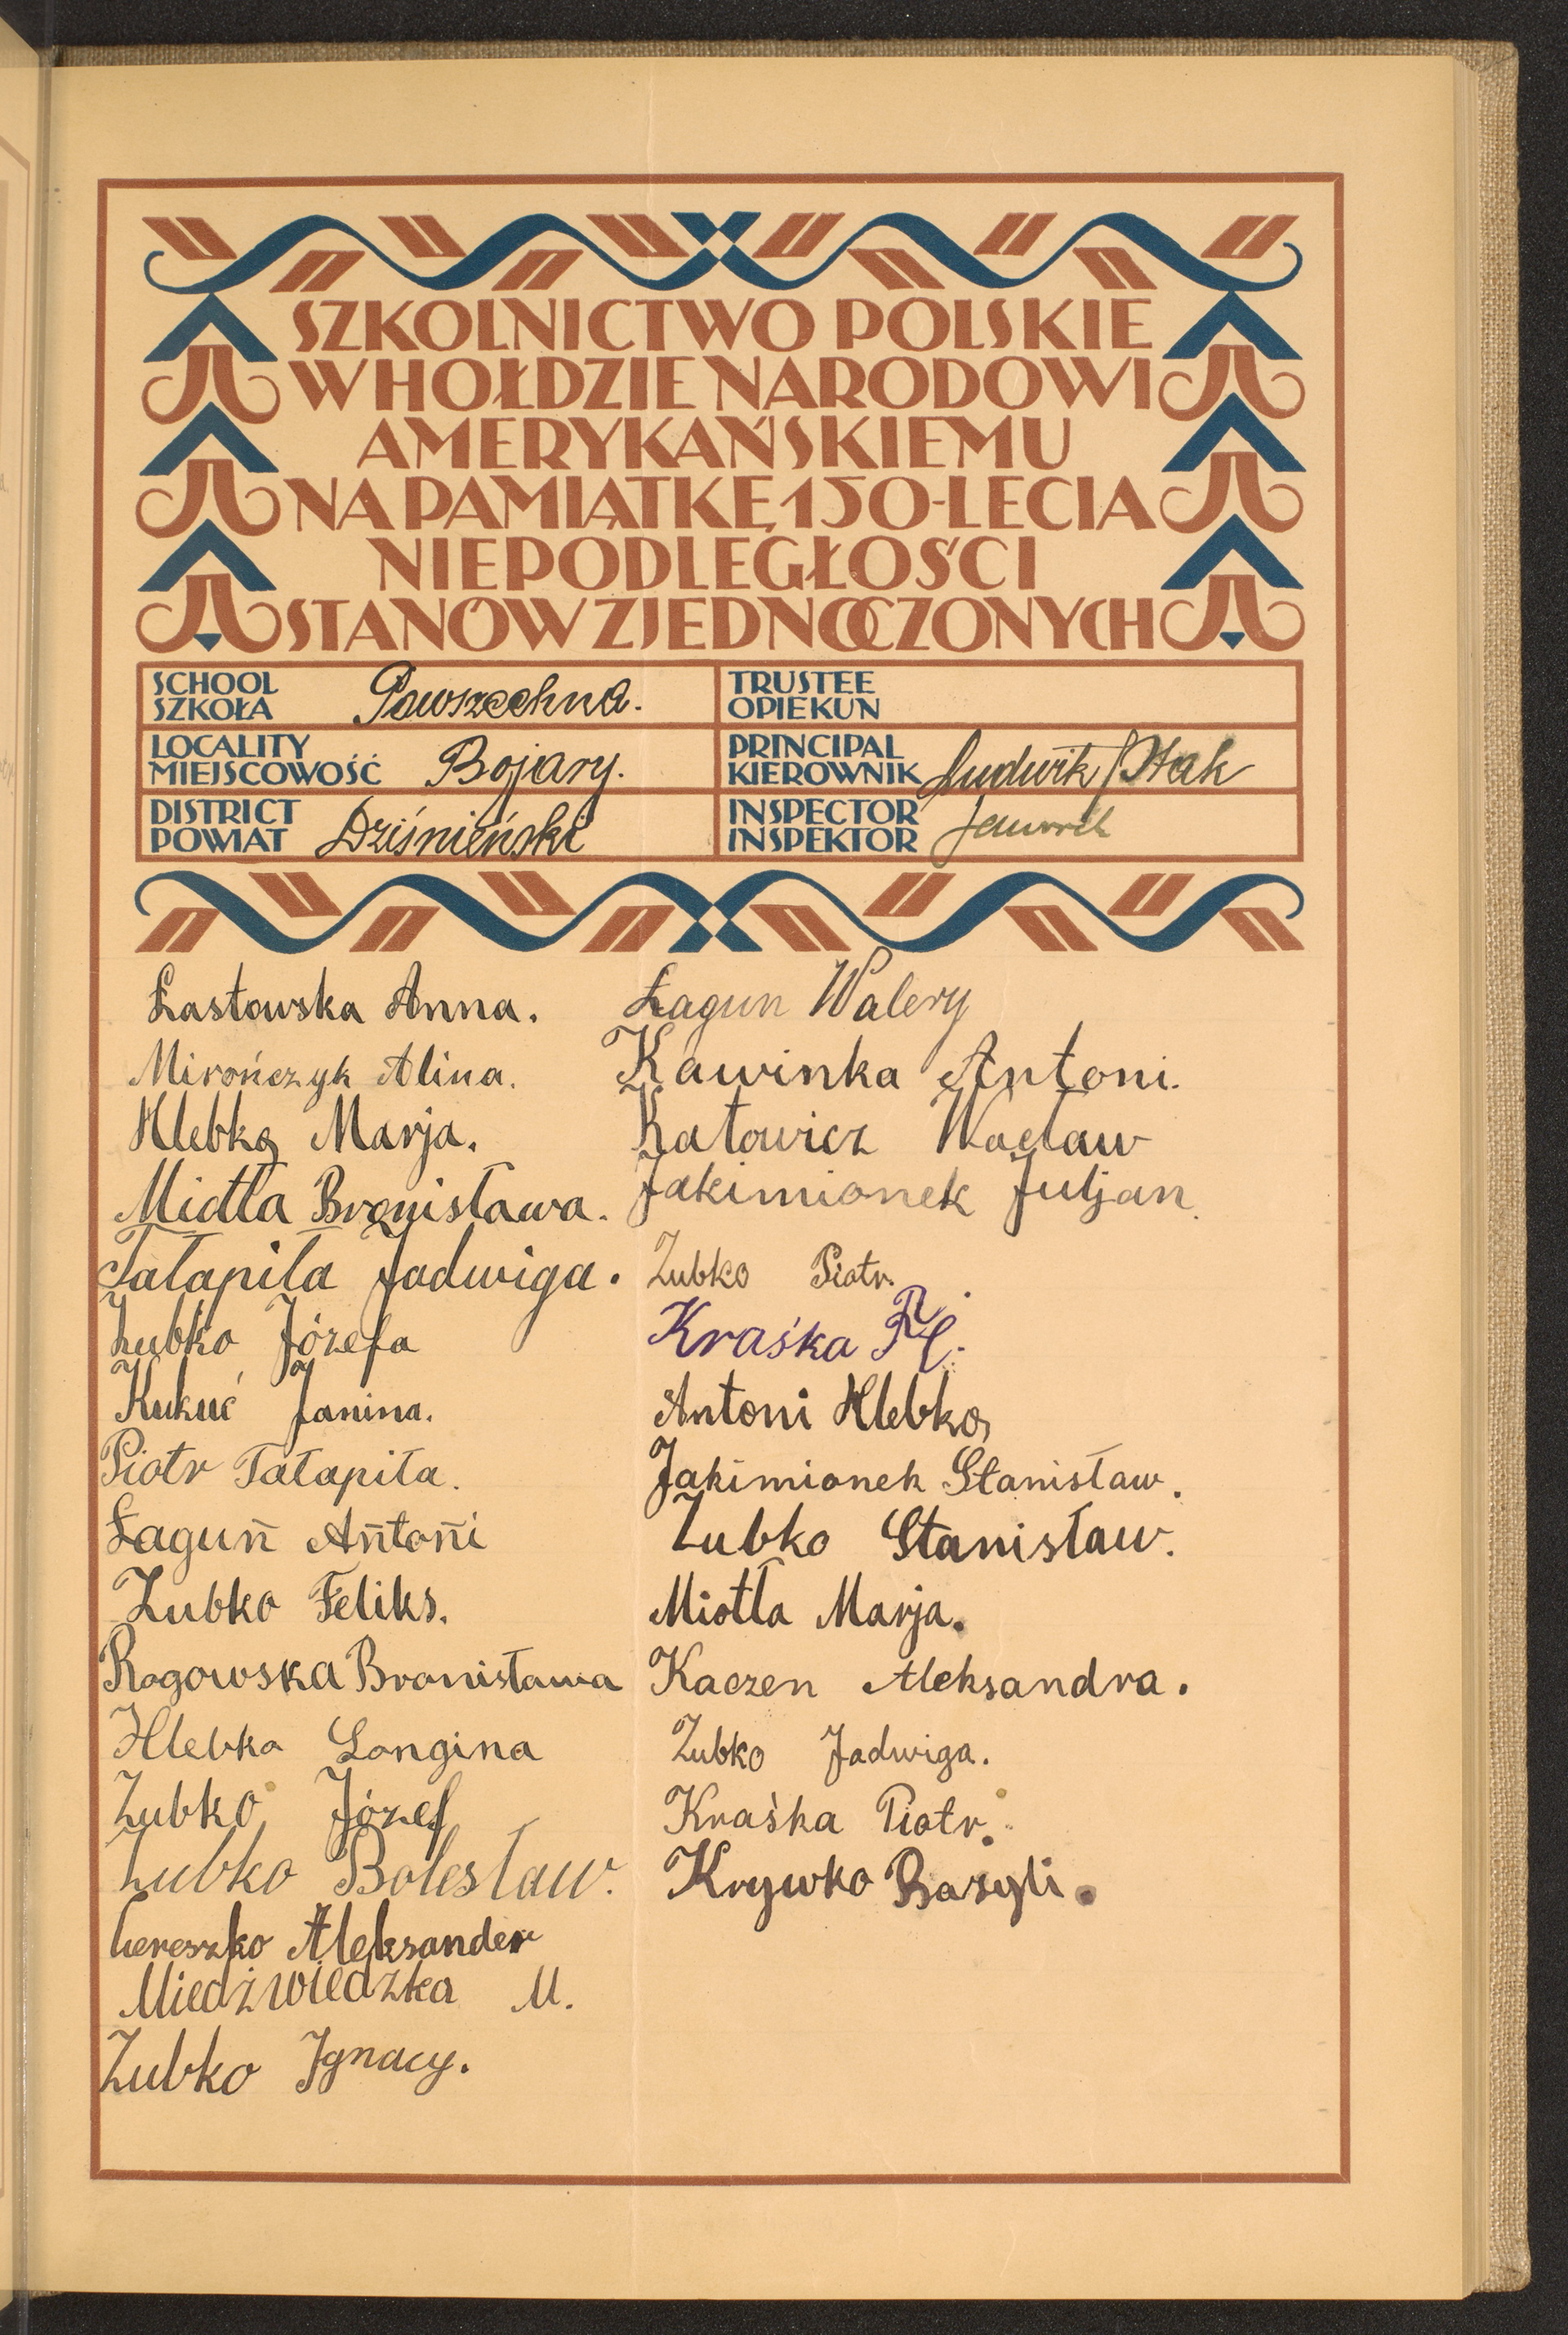 SZKOLNICTWO POLSKIE
W HOŁDZIE NARODOWI
AMERYKAŃSKIEMU
NA PAMIĄTKĘ 150-LECIA
NIEPODLEGŁOŚCI
STANÓW ZJEDNOCZONYCH
SCHOOL
SZKOŁA
Powszechna.
TRUSTEE
OPIEKUN
LOCALITY
MIEJSCOWOŚĆ
Bojary.
PRINCIPAL
KIEROWNIK
Ludwik Ptak
DISTRICT
POWIAT
Dziśnieński
INSPECTOR
INSPEKTOR
Łastowska Anna.
Mirończyk Alina.
Hlebko Marja.
Miotła Bronisława.
Tałapiła Jadwiga.
Zubko Józefa
Kukuć Janina.
Piotr Tałapiła.
Łagun Antoni
Zubko Feliks.
Rogowska Bronisława
Hlebko Longina
Zubko Józef
Zubko Bolesław.
Aleksander
Miedźwiedzka M.
Zubko Ignacy.
Łagun Walery
Kawinka Antoni.
Katowicz Wacław
Jakimionek Juljan.
Zubko Piotr.
Kraśka
Antoni Hlebko
Jakimionek Stanisław.
Zubko Stanisław.
Miotła Marja.
Kaczen Aleksandra.
Zubko Jadwiga.
Kraśka Piotr.
Krywko Bazyli.